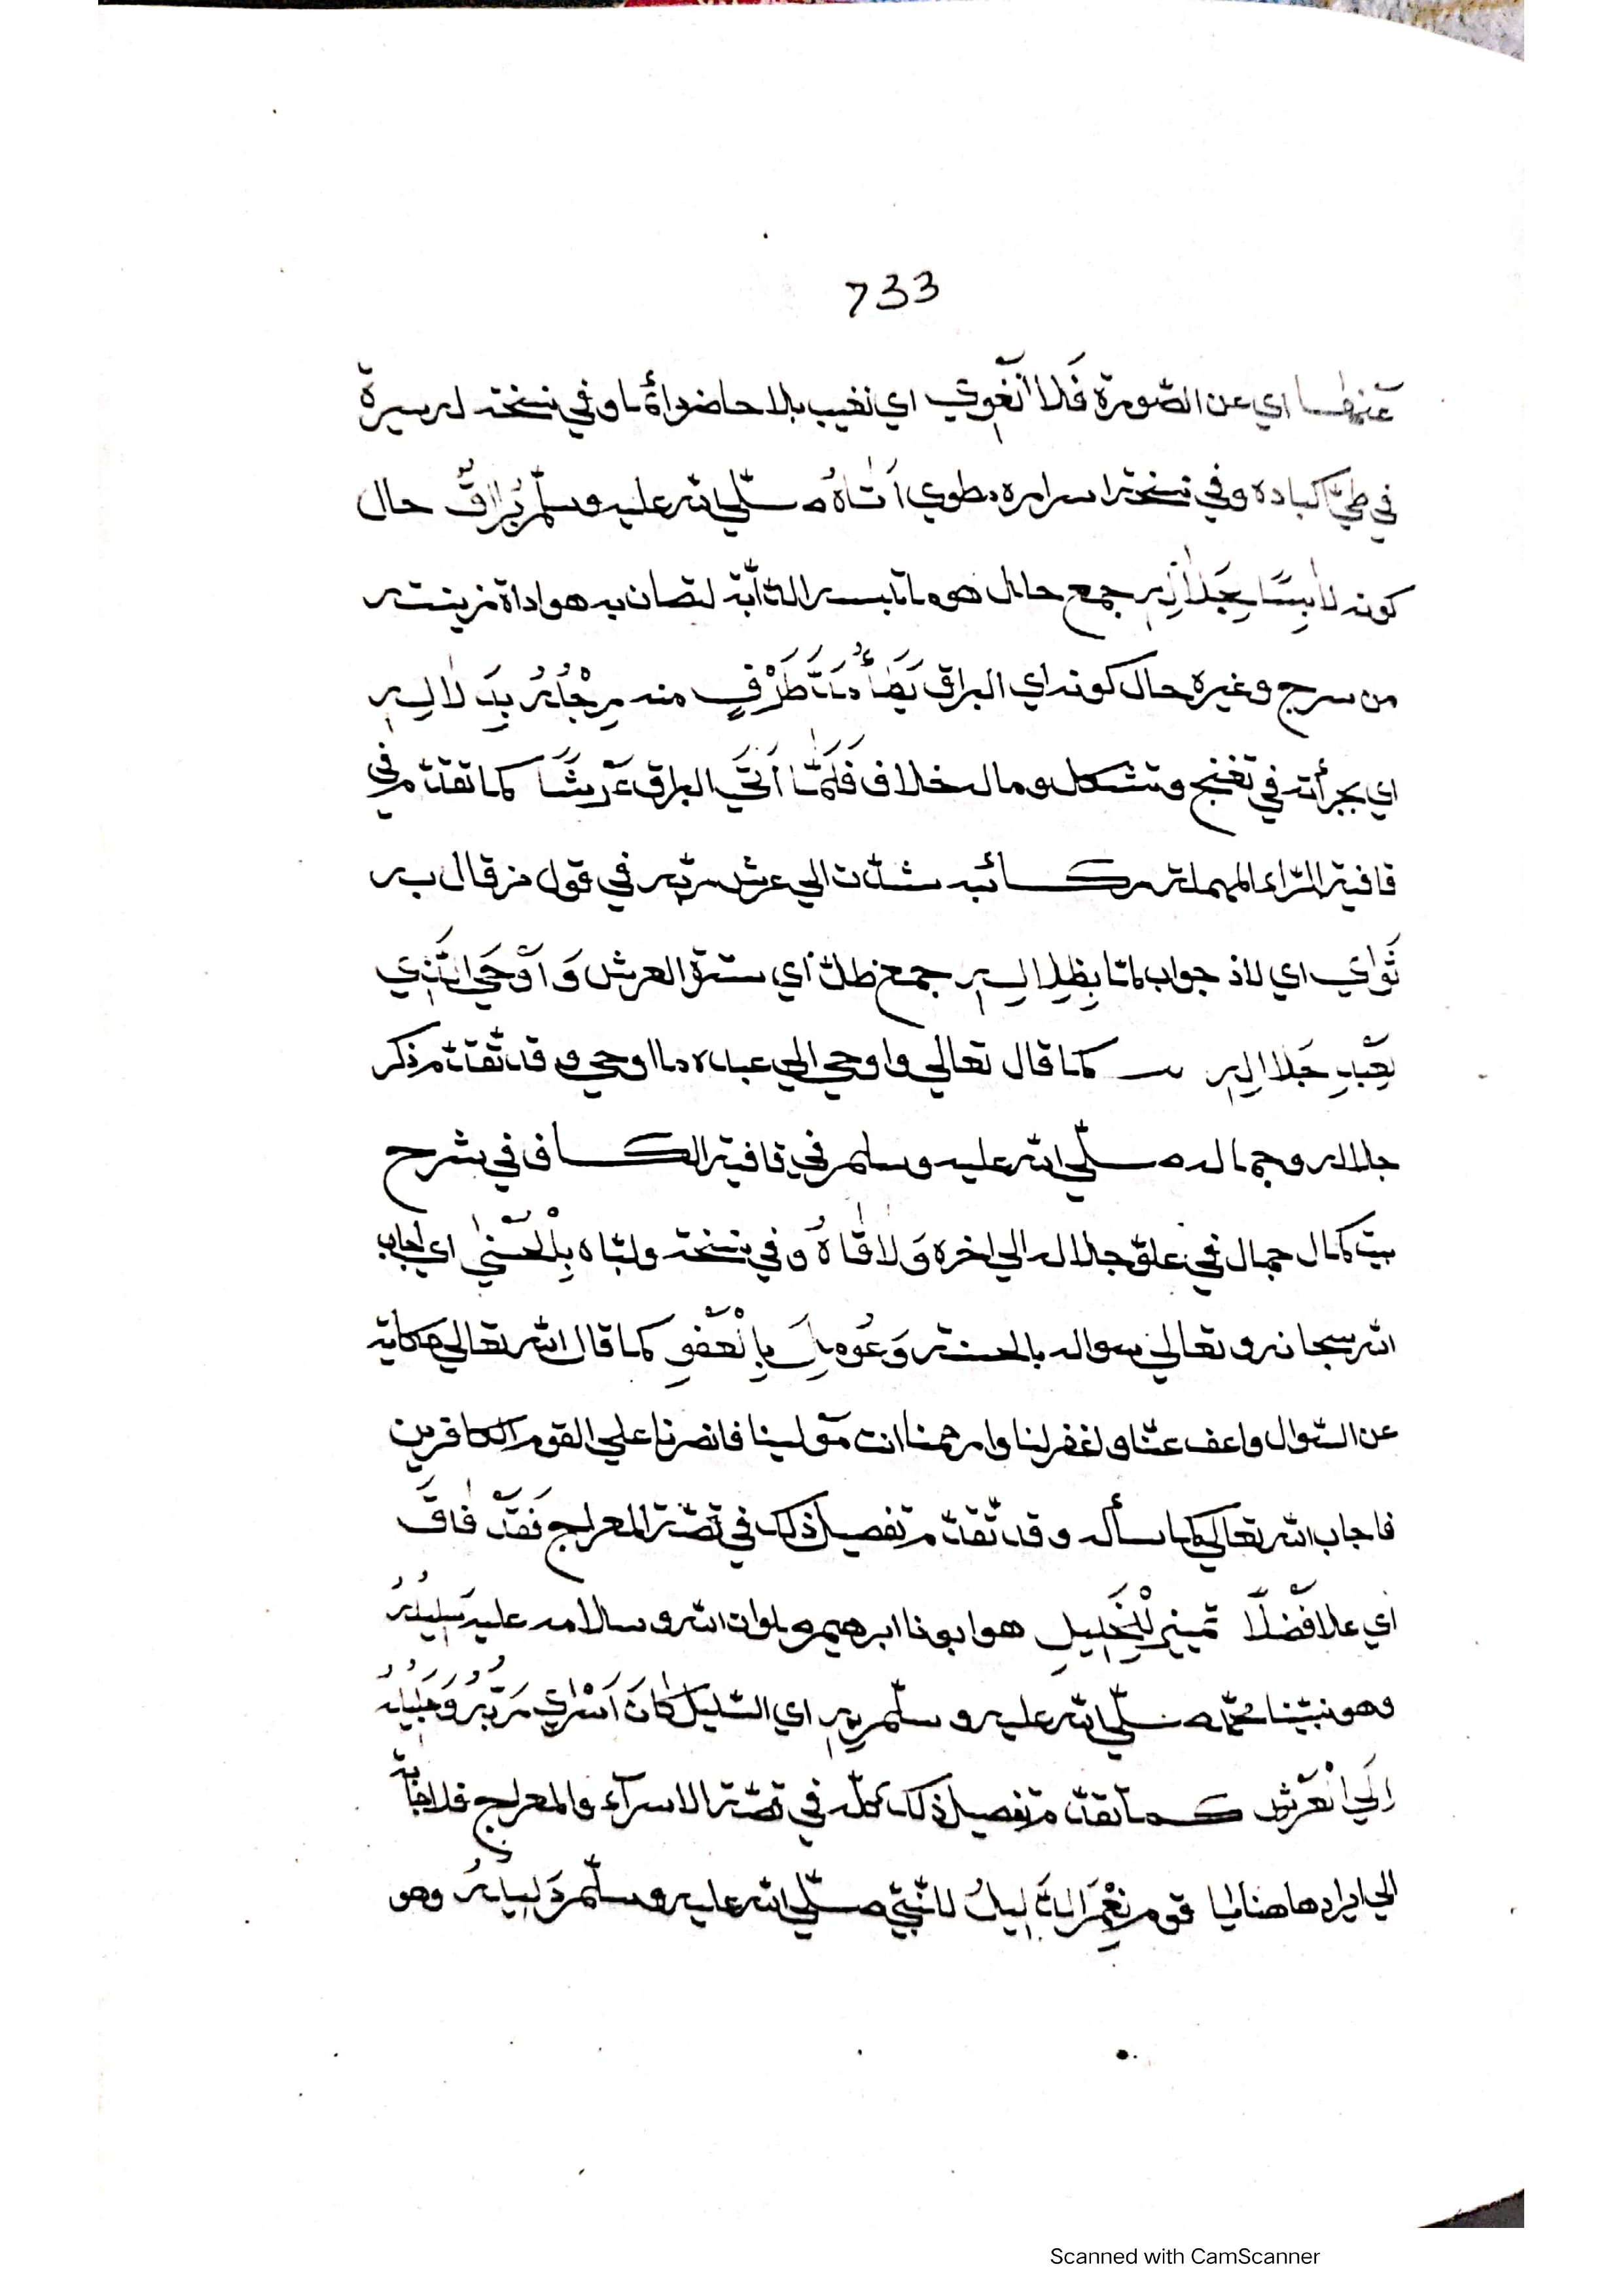 733
عنها اي عن الصّورة فَلَا نَّغَوِي اي نغيب بلا حاضر دائمًا وفي نسخته لم سيرة
في طيّ اكباده وفي نسخته اسراره مطوي اَتَاهُ صلّي الله عليه وسلّم بُرَاقٌ حال
كونه لَابِسًا بِجَلَالِهِ جمع حال هو ما تلبسه الدّآبّة لتصان به هو اداة زينته
من سرج وغيره حال كونه اي البراق يَطَأُ مَدَّ طَرْفٍ منه رِجْلُهُ بِدَلَالِهِ
اي بجرأته في تغنج وتشكل وماله خلاف فَلَمَّا اَتَي البراق عَرْشًا كما تقدّم في
قافية الرّاء المهملة ركائبه شدّت الي عرش ربّه في قول من قال به
ثَوَاي اي لاذ جواب لمّا بِظِلَالِهِ جمع ظلّ اي سترة العرش وَاَوْحَي الَّذِي
بِعَبْدِ جَلَالِهِ كما قال تعالي واوحي الي عبده ما اوحي وقد تّقدّم ذكر
جلاله وجماله صلّي الله عليه وسلم في قافية الكاف في شرح
بيت كمال جمال في علوّ جلاله الي اخره وَلَاقَاهُ وفي نسخته ولبّاه بِالْحُسْنٰي اي اجاب
الله سبحانه وتعالي سواله بالحسنة وَعُوهِلَ بِالْعَفْوِ كما قال الله تعالي حكاية
عن السّوال واعف عنّا واغفر لنا وارحمنا انت مَوْلينا فانصرنا علي القوم الكافرين
فاجاب الله تعالي كما سأله وقد تّقدّم تفصيل ذلك في قصّة المعراج فَقَدْ فَاقَ
اي علا فَضْلًا تميز لِلْخَلِيلِ هو ابونا ابرهيم صلوات الله وسلامه عليه سَلِيلُهُ
وهو نبيّنا محمّد صلّي الله عليه وسلّم بِهِ اي السّليل كَانَ اَسْرٰي رَبُّهُ وَجَلِيلُهُ
اِلَي الْعَرْشِ كما تقدّم تفصيل ذلك كلّه في قصّة الاسرآء والمعراج فلا حاجة
الي ايرادها هنا ايا قوم نِعْمَ الدَّلِيلُ للنّبيّ صلّي الله عليه وسلّم دَلِيلُهُ وهو
Scanned with CamScanner